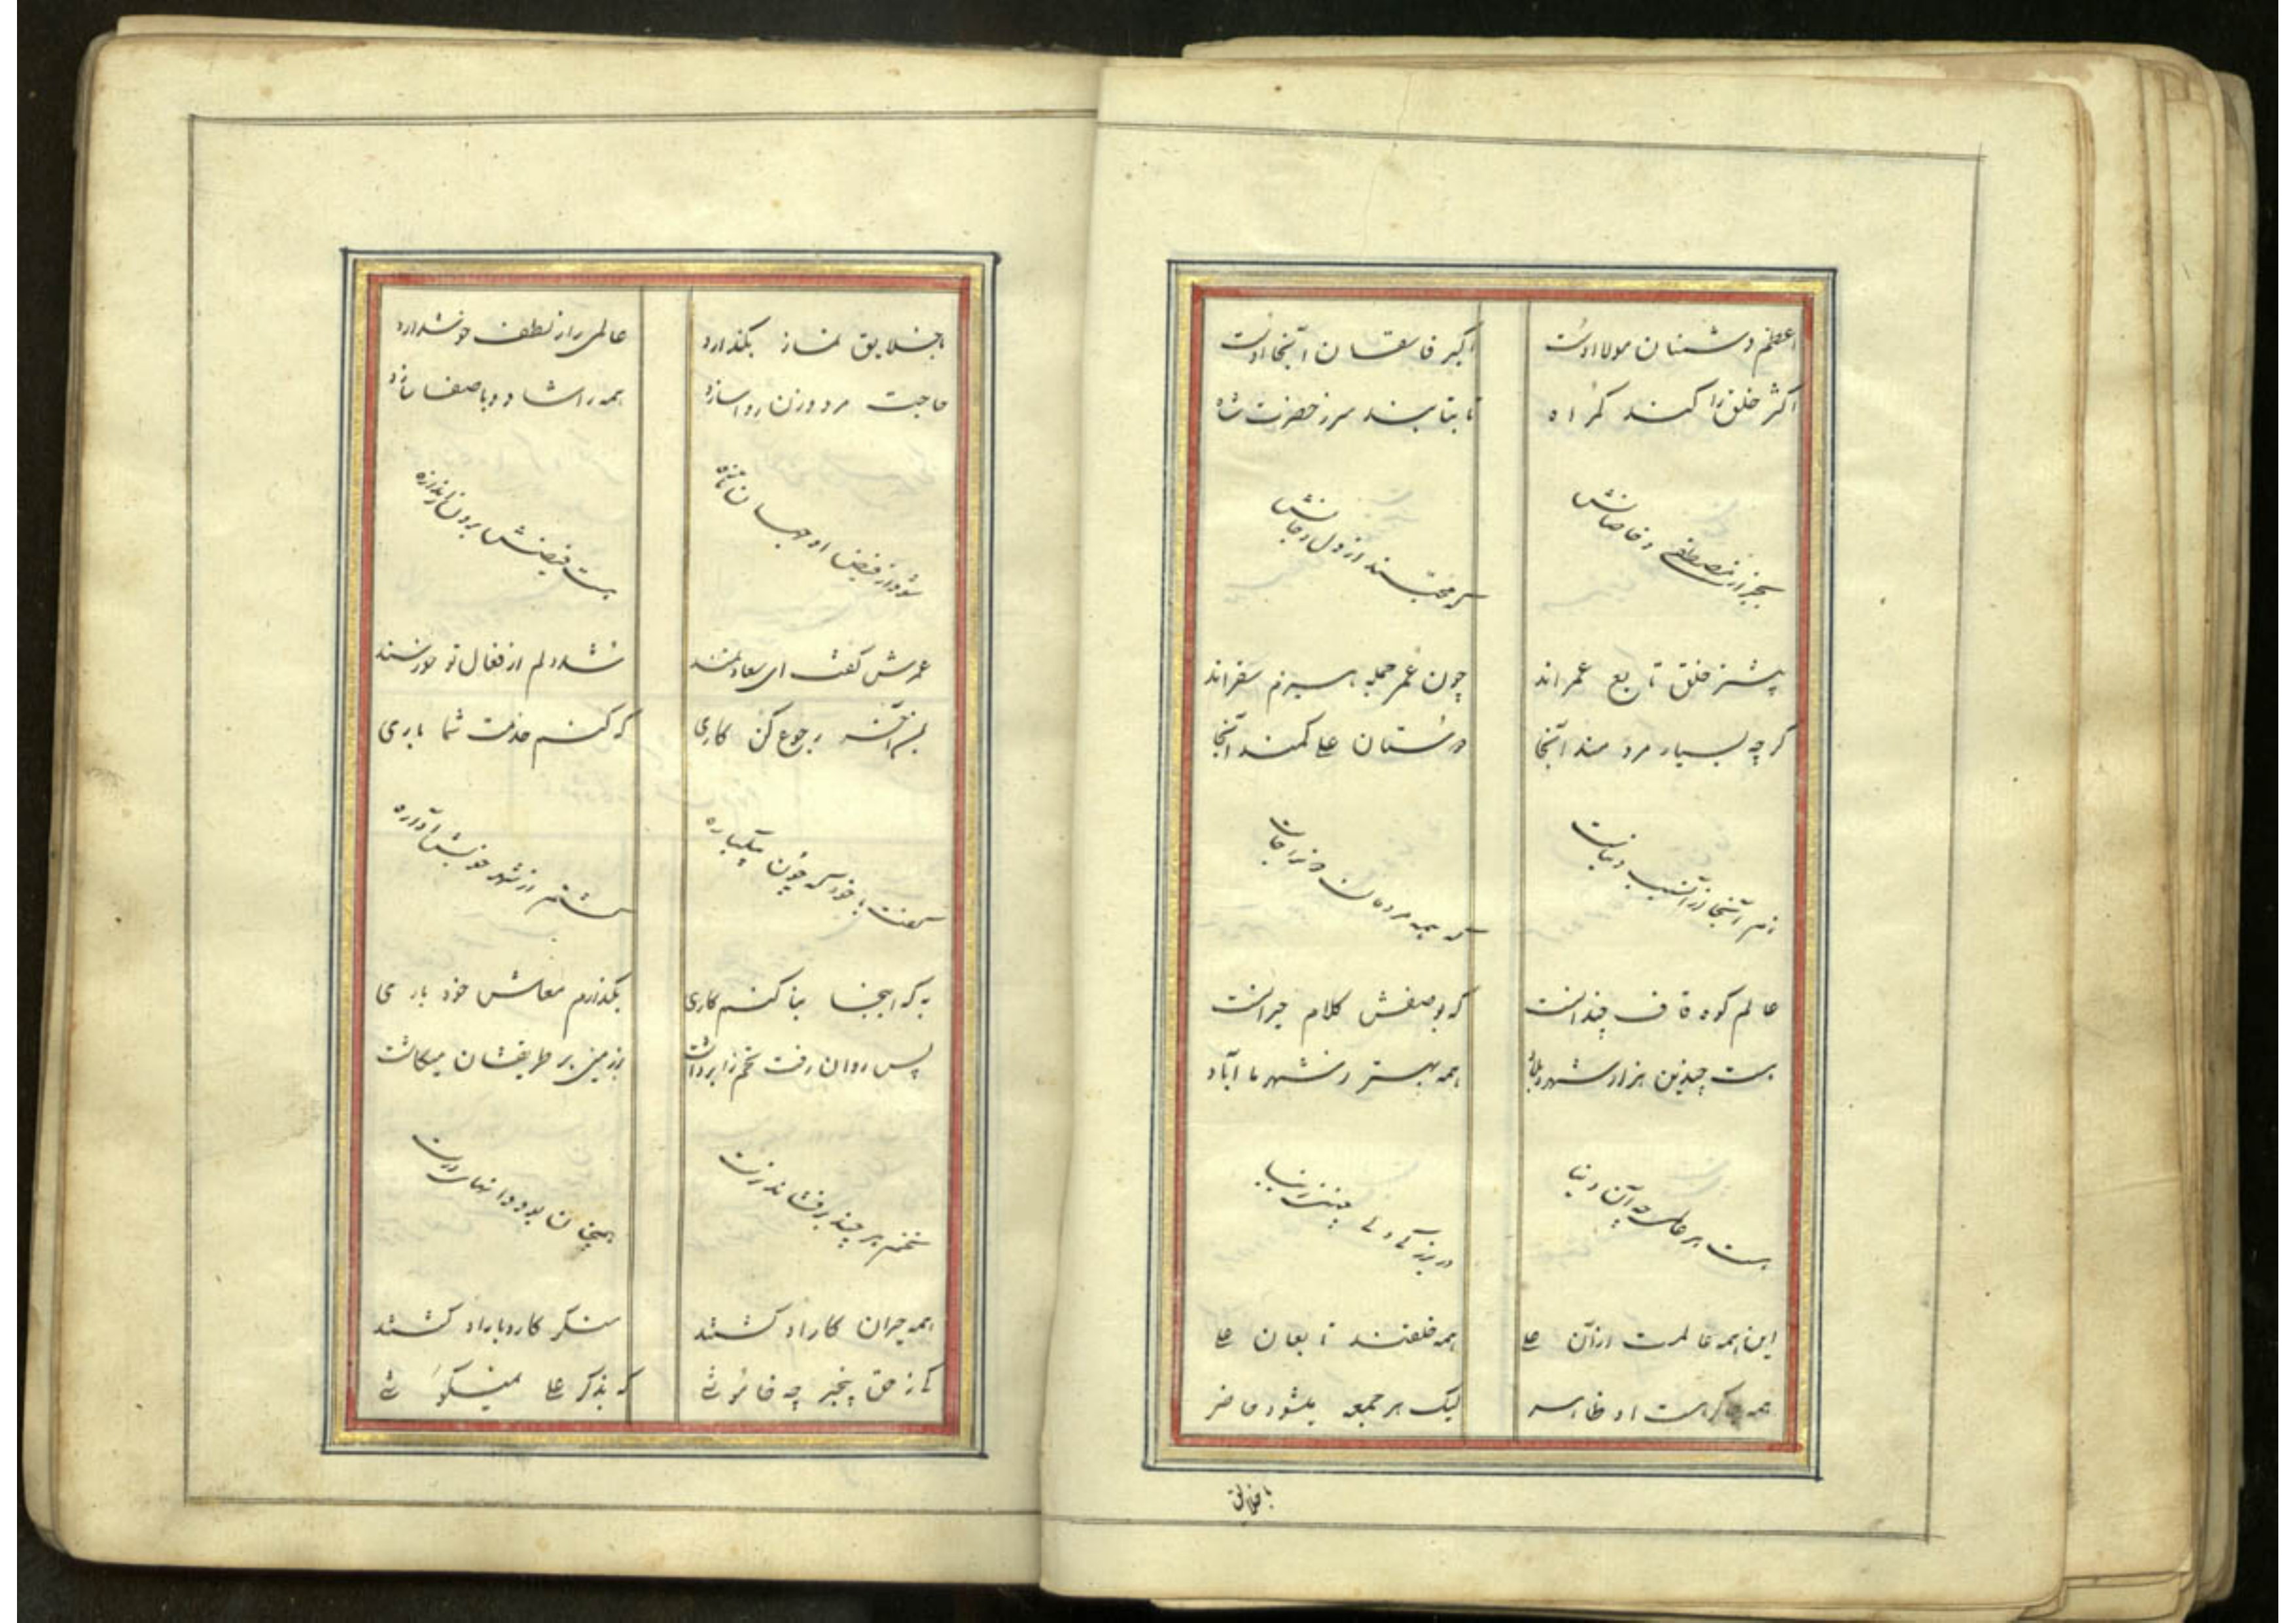 اعظم دشمنان مولا اوست
اکبر فاسقان آنجا اوست
اکثر خلق را کند گمراه
تا بتابند سر ز حضرت شاه
بجز از مصطفی و خاصانش
که محبّند از دل و جانش
پیشتر خلق تابع عمراند
چون عمر جمله سفراند
گرچه بسیار مردمند آنجا
دوستان علی کمند آنجا
که همه مردمان
عالم کوه قاف چندانست
که بوصفش کلام حیرانست
هست چندین هزار شهر
همه بهتر ز شهرها آباد
هست هر عالمی چو این دنیا
در بزرگی ولی چنین زیبا
این همه عالمست از آن علی
همه خلقند تابعان علی
همه جا گرهست او ظاهر
لیک هر جمعه میشود حاضر
با خلایق
با خلایق نماز بگذارد
عالمی را ز لطف خوش دارد
حاجت مرد و زن روا سازد
همه را شاد و با صفا سازد
شود از فیض او جهان تازه
هست فیضش برون ز اندازه
عمرش گفت ای سعادتمند
شد دلم از فعال تو خورسند
بمن البته رجوع کن کاری
که کنم خدمت شما باری
گفت با خود که چون یکباره
گشتم از شهر خویش آواره
به که اینجا بنا کنم کاری
بگذرد معاش خود باری
پس روان رفت تخم را برداشت
بر زمین بر طریقشان میکاشت
تخم هر چند برفشاند نرست
همچنان بود دانهای درست
همه حیران کار او گشتند
منکر کار و بار او گشتند
کز حق بیخبر چه خائنی
که بذکر علی نمیگوئی